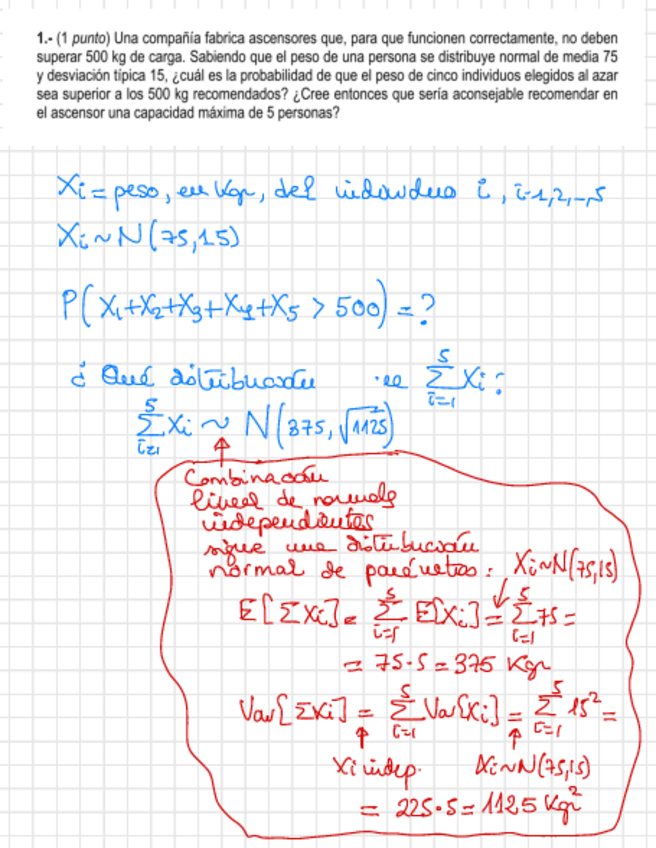 1.- (1 punto) Una compañía fabrica ascensores que, para que funcionen correctamente, no deben
superar 500 kg de carga. Sabiendo que el peso de una persona se distribuye normal de media 75
y desviación típica 15, ¿cuál es la probabilidad de que el peso de cinco individuos elegidos al azar
sea superior a los 500 kg recomendados? ¿Cree entonces que sería aconsejable recomendar en
el ascensor una capacidad máxima de 5 personas?
Xi = peso, en Kgr, del individuo i, i=1,2,-,5
Xi ~ N(75,15)
P(X1+X2+X3+X4+X5 > 500) = ?
¿ Qué distribución ∑Xi ?
5
∑ Xi ~ N(375, √1125)
i=1
Combinación
lineal de normales
independientes
sigue una distribución
normal de parámetros: Xi~N(75,15)
E[∑Xi] = ∑ E[Xi] = ∑ 75 =
= 75·5 = 375 Kgr
Var[∑Xi] = ∑ Var[Xi] = ∑ 15² =
Xi indep. Xi~N(75,15)
= 225·5 = 1125 Kgr²